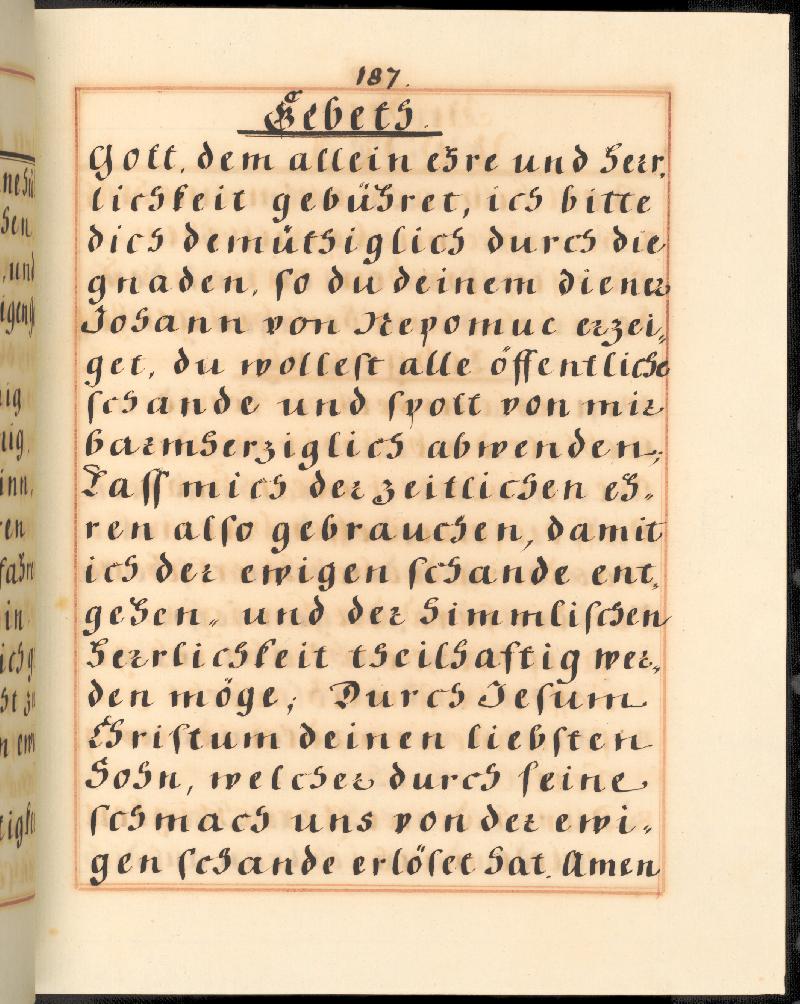 187.
Gebets.
Gott, dem allein ehre und herr,
lichkeit gebühret, ich bitte
dich demüthiglich durch die
gnaden, so du deinem diener
Johann von Nepomuc erzei„
get, du wollest alle öffentliche
schande und spott von mir
barmherziglich abwenden;
Lass mich der zeitlichen eh„
ren also gebrauchen, damit
ich der ewigen schande ent„
gehen„ und der himmlischen
herrlichkeit theilhaftig wer„
den möge; Durch Jesum
Christum deinen liebsten
Sohn, welcher durch seine
schmach uns von der ewi„
gen schande erlöset hat. Amen